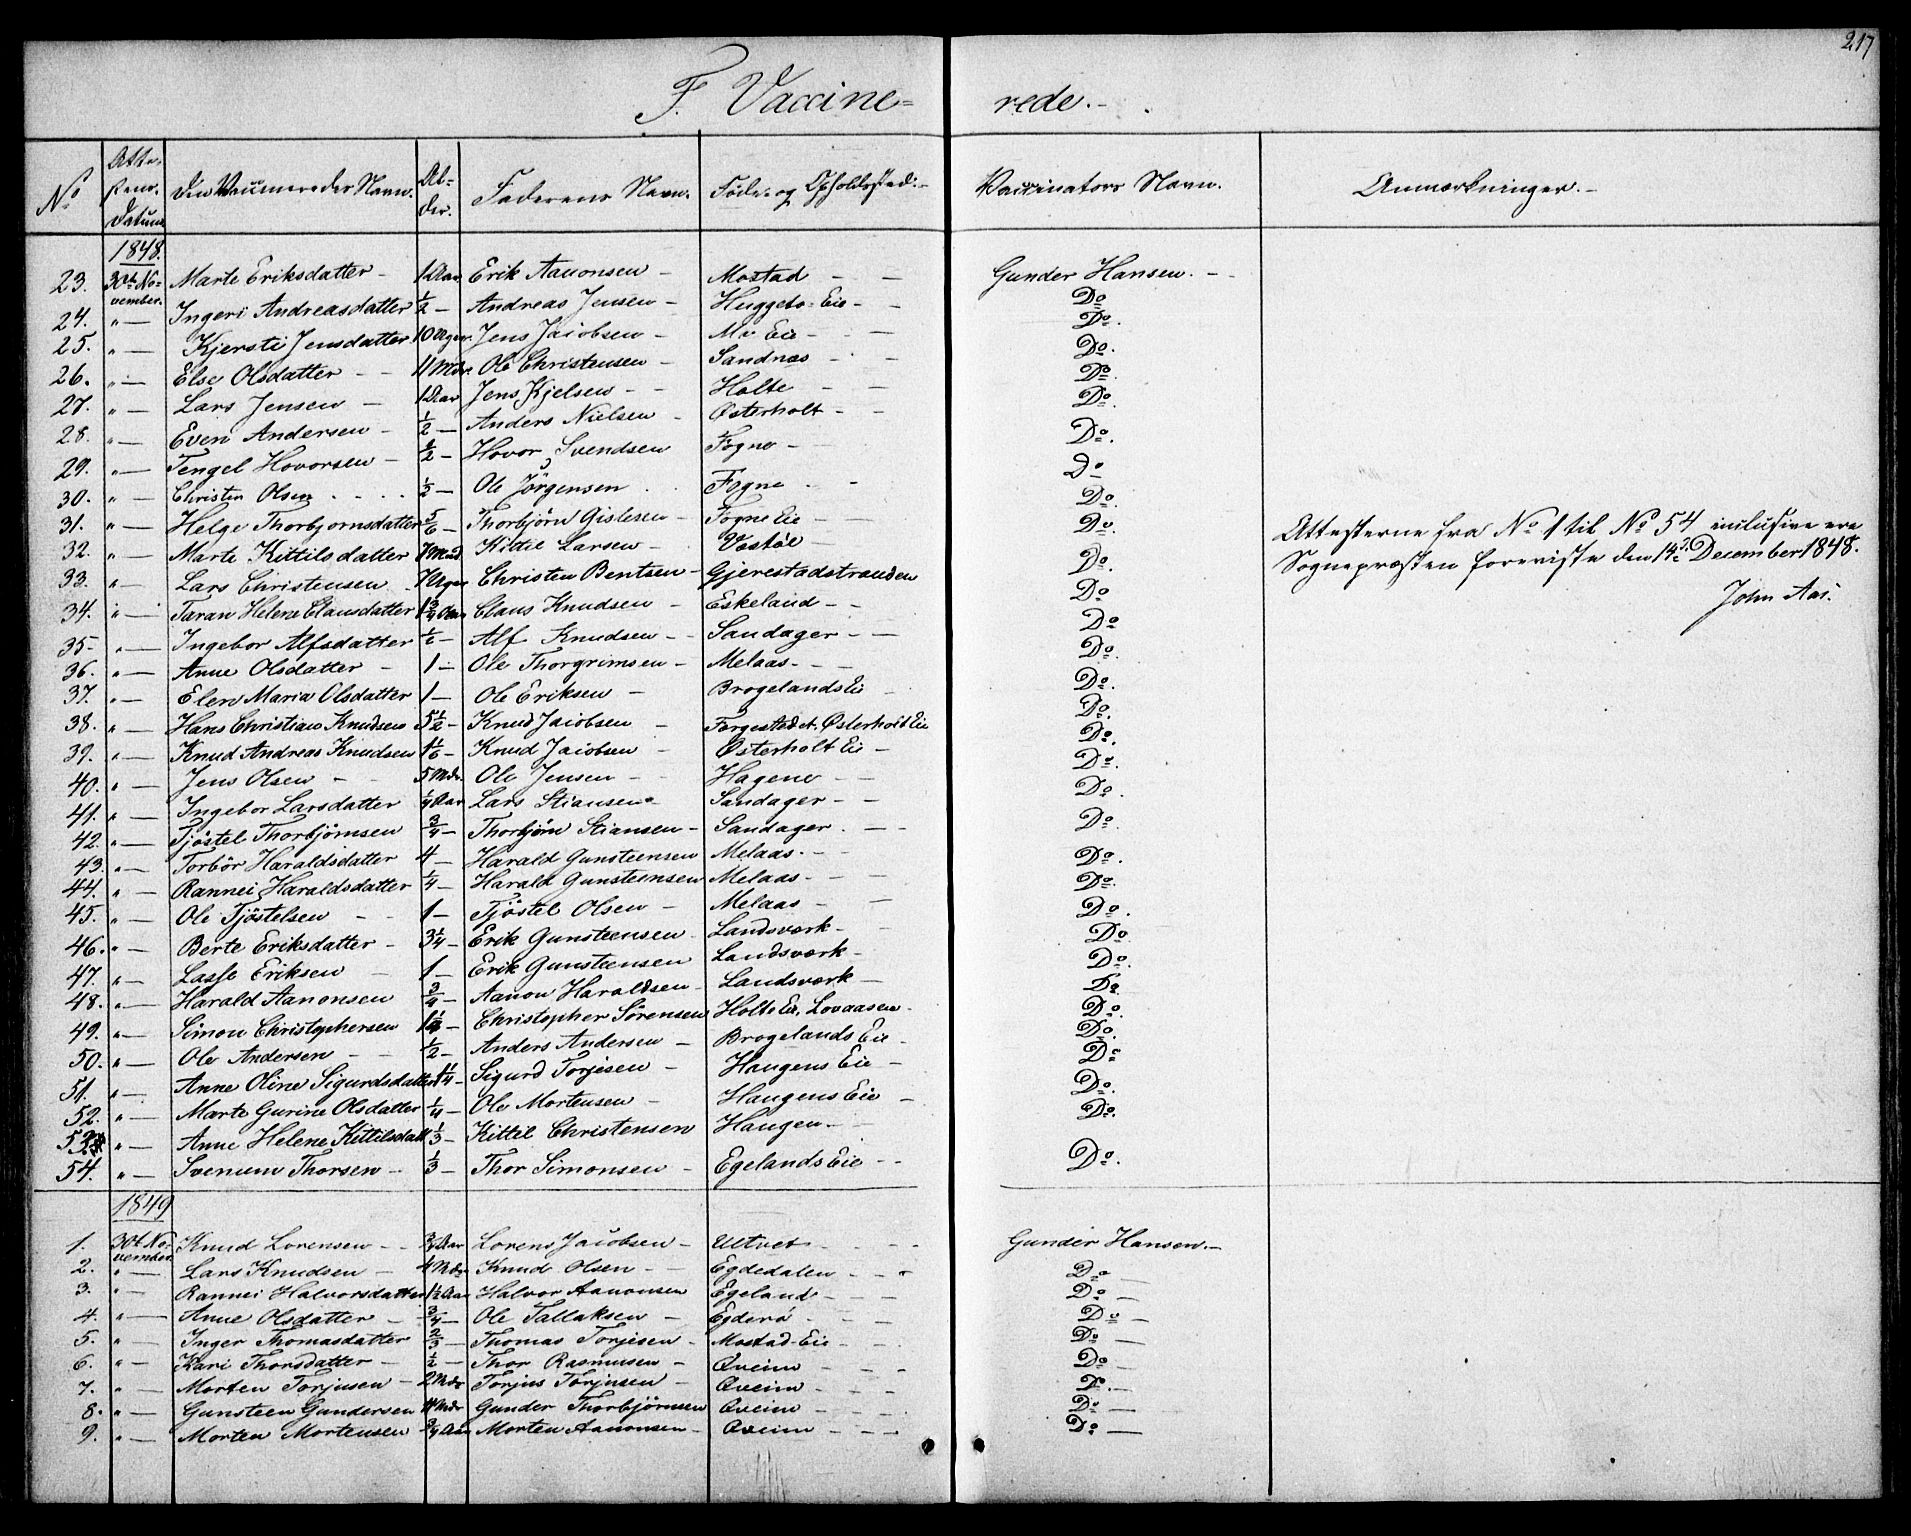 217
F. Vaccine= rede.-
No Attestens Datum Den Vaccineredes Navn. Alder. Faderens Navn. Føde- og Opholdssted:- Vaccinators Navn. Anmærkninger.-
1848.
23. 30te November. Marte Eriksdatter - 1 Aar Erik Aanonsen - Mostad - - Gunder Hansen. - -
24. " — Ingeri Andreasdatter 1/2 - Andreas Jensen - Huggeto-Eie - Do
25. " — Kjersti Jensdatter 10 Uger Jens Jacobsen - Mo Eie - - Do.
26. " — Else Olsdatter - - 11 Mdr Ole Christensen - Sandnæs - - Do.
27. " — Lars Jensen - 1 Aar Jens Kjelsen - - Holte - - Do.
28. " — Even Andersen - 1/2 - Anders Nielsen - Østerholt - - Do.
29. " — Tengel Hovorsen - 1/2 - Hovor Svendsen Fogne - Do.
30. " — Christen Olsen . . . . 1/2 - Ole Jörgensen . Fogne - - Do
31. " — Helge Thorbjornsdatter 5/6 - Thorbjörn Gislesen - Fogne Eie - Do.
32. " — Marte Kittilsdatter 7 Maad Kittil Larsen - Vestøl - Do.
33. " — Lars Christensen - 7 Uger Christen Bentsen - Gjerestadstranden Do.
34. " — Taran Helene Clausdatter 1 3/4 Aar Claus Knudsen - Eskeland - - Do.
35- " — Ingebor Alfsdatter 1/2 - Alf Knudsen - - Sandager - - Do
36. " — Anne Olsdatter - 1 - Ole Thorgrimsen - Melaas - - - Do.
37. " — Elen Maria Olsdatter 1 - Ole Eriksen - Brogelands Eie - Do.
38. " — Hans Christian Knudsen 5 1/2 - Knud Jacobsen - Torgestad et. Østerholt Eie Do.
39. " — Knud Andreas Knudsen 1 1/6 - Knud Jacobsen - Østerholt Eie - Do.
40. " — Jens Olsen - - 5 Mdr. Ole Jensen - - Hagene - - Do.
41. " — Ingebor Larsdatter 1/4 Aar Lars Stiansen - Sandager - - Do.
42. " — Tjöstel Thorbjörnsen 3/4 - Thorbjörn Stiansen - Sandager . - - Do.
43. " — Torbör Haraldsdatter 4 - Harald Gunsteensen Melaas - - Do.
44. " — Rannei Haraldsdatter 1/4 - Harald Gunsteensen Melaas - - Do.
45. " — Ole Tjöstelsen - - 1 - Tjöstel Olsen - Melaas - - Do.
46. " — Berte Eriksdatter - 3 1/4 - Erik Gunsteensen - Landsværk - - Do.
47. " — Lasse Eriksen - 1 - Erik Gunsteensen Landsværk - Do.
48. " — Harald Aanonsen 3/4 - Aanon Haraldsen - Landsværk - Do
49. " — Simon Christophersen Christopher Sörensen Holte Eie, Lovaasen - Do.
50. " — Ole Andersen - - 1/2 - Anders Andersen - Brogelands Eie - Do.
51. " — Anne Oline Sigurdsdatter 1 1/4 - Sigurd Torjesen - Haugens Eie - Do.
52. " — Marte Gurine Olsdatter 1/4 - Ole Mortensen - Haugens Eie - Do.
53. " — Anne Helene Kittilsdatt 1/3 - Kittil Christensen Haugen - - Do.
54. " — Svenum Thorsen - 1/3 - Thor Simonsen - Egelands Eie - - Do.
Attesterne fra No 1 til No 54 inclusive ere
Sognepræsten foreviste den 14de December 1848.
John Aas.
1849
1. 30te November Knud Lorensen - - 3/4 Aar Lorens Jacobsen - Ultvet - - - - Gunder Hansen. -
2. " — Lars Knudsen - 4 Mdr Knud Olsen - - Egdedalen - - - Do —
3. " — Rannei Halvorsdatter 1 1/2 Aar Halvor Aanonsen Egeland - - - Do —
4. " — Anne Olsdatter - 3/4 - Ole Tallaksen - Egderø - - - Do —
5. " — Inger Thomasdatter 2/3 - Thomas Torjesen - Mostad-Eie - - Do —
6. " — Kari Thorsdatter - 1/2 - Thor Rasmussen - Qveim - - - Do —
7. " — Morten Torjusen - 2 Mdr Torjus Torjusen - Qveim - - - Do. —
8. " — Gunsteen Gundersen 11 Mdr Gunder Thorbjörnsen Qveim - - - Do —
9. " — Morten Mortensen 3/4 Aar Morten Aanonsen - Qveim - - - Do —